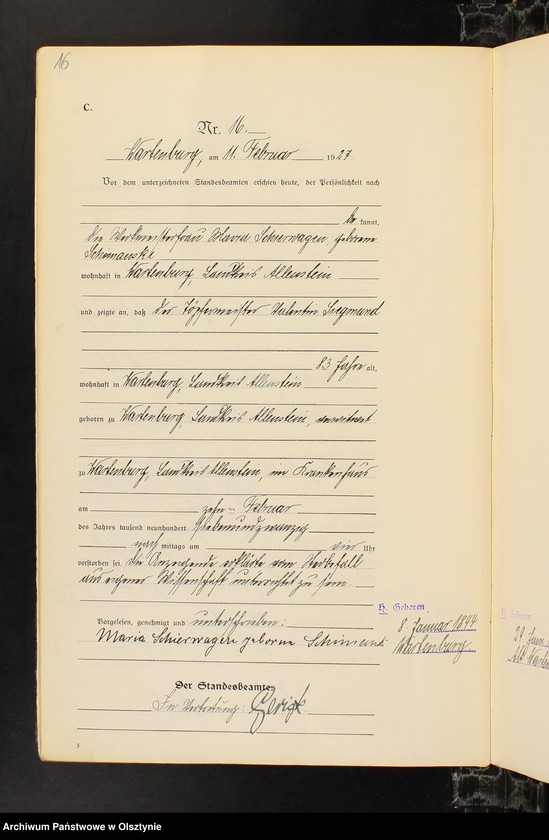 16
C.
Nr. 16.
Wartenburg, am 11. Februar 1927
Vor dem unterzeichneten Standesbeamten erschien heute, der Persönlichkeit nach
be kannt,
die Werkmeisterfrau Maria Schierwagen, geborene
Schimanski
wohnhaft in Wartenburg, Landkreis Allenstein
und zeigte an, daß der Töpfermeister Valentin Siegmund
83 Jahre alt,
wohnhaft in Wartenburg, Landkreis Allenstein
geboren zu Wartenburg, Landkreis Allenstein, verwitwet
zu Wartenburg, Landkreis Allenstein, im Krankenhaus
am zehn ten Februar
des Jahres tausend neunhundert siebenundzwanzig
nach mittags um vier Uhr
verstorben sei. Die Anzeigende erklärte vom Sterbefall
aus eigener Wissenschaft unterrichtet zu sein.
Vorgelesen, genehmigt und unterschrieben:
Maria Schierwagen geborne Schimanski
Der Standesbeamte
In Vertretung: Gerigk
H. Geboren
8. Januar 1844
Wartenburg
H. Geboren
29 Juni
Alt Warten
5
Archiwum Państwowe w Olsztynie